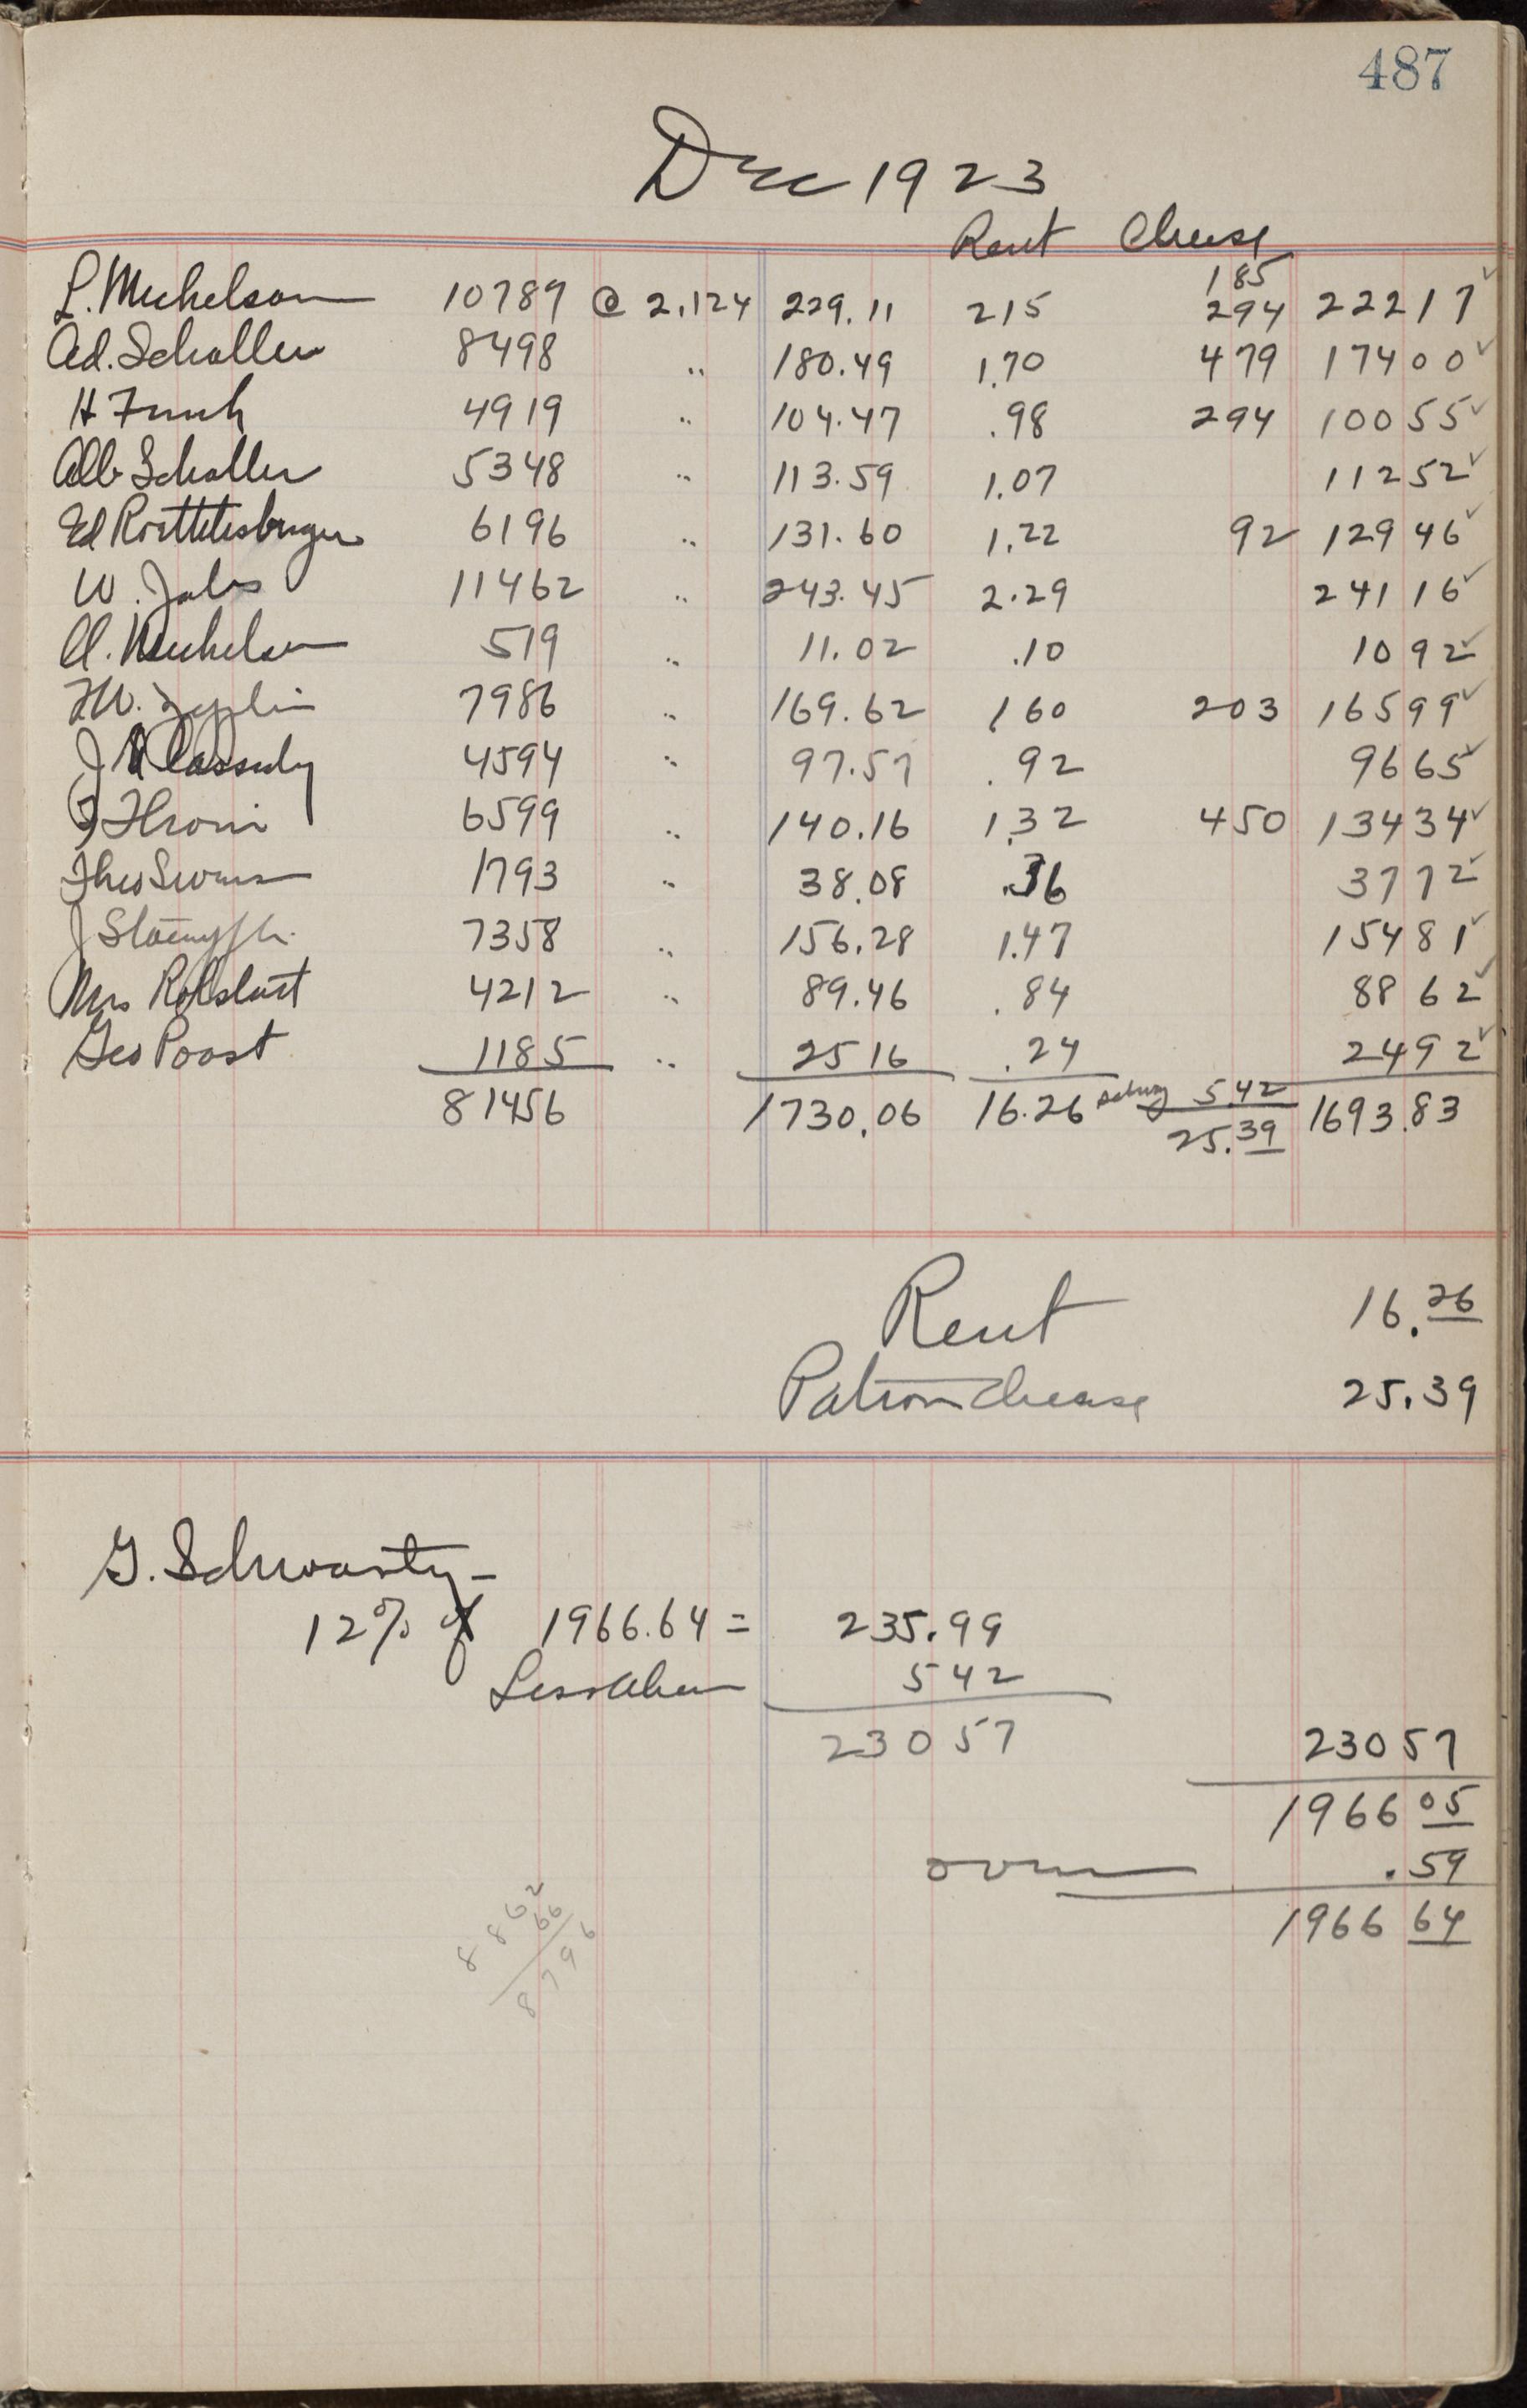 487
Dec 1923
Rent Cheese
185
L. Michelson 10789 @ 2.124 229.11 215 294 22217 ✓
Ad. Schaller 8498 " 180.49 1.70 479 17400 ✓
H 4919 " 104.47 .98 294 10055 ✓
Alb Schaller 5348 " 113.59 1.07 11252 ✓
Ed 6196 " 131.60 1.22 92 12946 ✓
W. 11462 " 243.45 2.29 24116 ✓
Michelson 519 " 11.02 .10 1092 ✓
7986 " 169.62 1.60 203 16599 ✓
J Cassidy 4594 " 97.57 .92 9665 ✓
6599 " 140.16 1.32 450 13434 ✓
Theo 1793 " 38.08 .36 3772 ✓
J 7358 " 156.28 1.47 15481 ✓
Mrs 4212 " 89.46 .84 8862 ✓
Geo Poast 1185 " 25 16 .24 2492 ✓
81456 1730.06 16.26 5.42 1693.83
25.39
Rent 16.26
Patron Cheese 25.39
G. Schwartz -
12% of 1966.64 = 235.99
Less 542
23057 23057
1966 05
over .59
1966 64
8862
66
8796